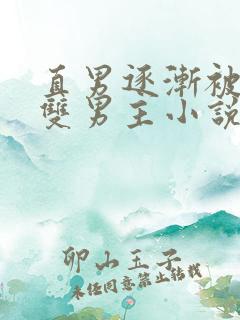 直男逐漸被
雙男主小說
卯山玉子
未经同意禁止转载